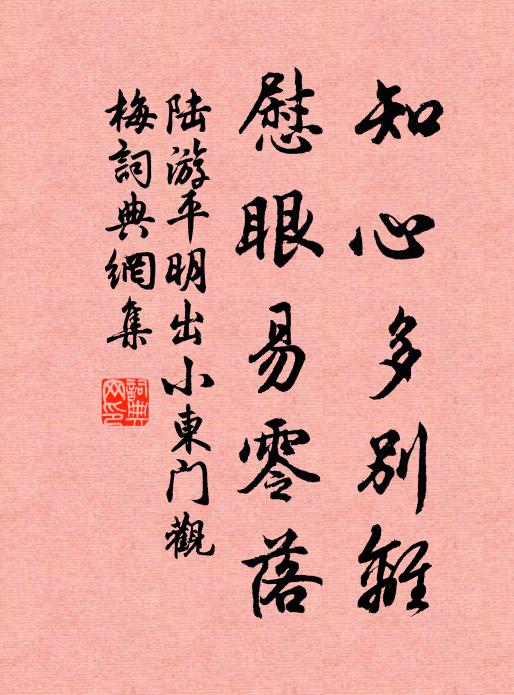 知心多别離
慰眼易零落
陆游平明出小東门觀
梅詞典網集
詞典网印